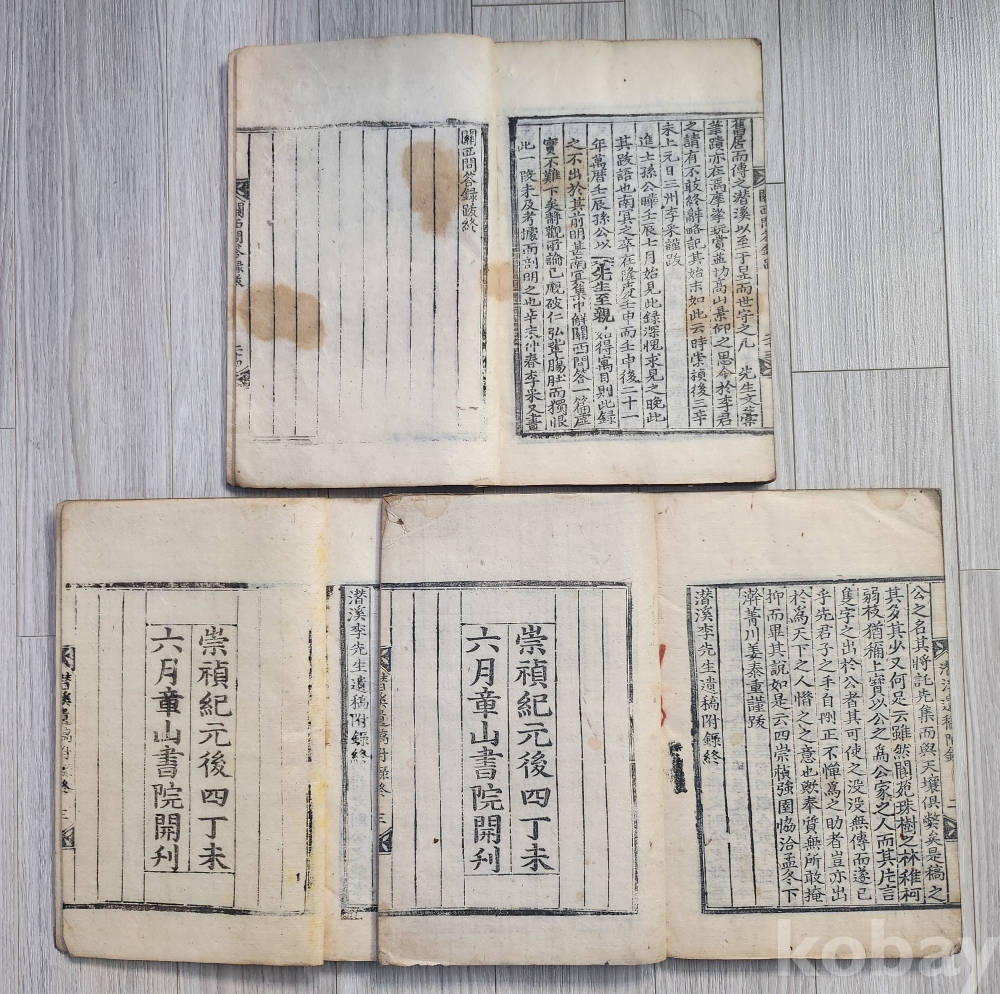 舊居而傳之潛溪以至于昱而世守之凡 先生文藁
筆蹟亦在焉摩挲玩賞益切高山景仰之思今於李君
之請有不敢終辭略記其始末如此云時崇禎後三辛
未上元日三州李采謹跋
進士孫公曄壬辰七月始見此錄深愧求見之晚此
其跋語也南冥之卒在隆慶壬申而壬申後二十一
年萬曆壬辰孫公以 先生至親 始得寓目則此錄
之不出於其前明甚南冥集中解關西問答一篇虛
實不難下矣靜觀爾論已覷破仁弘輩膓肚而獨恨
此一段未及考據而剖明之也辛未仲春李采又書
關西問答錄跋終
關西問答錄跋
二十四
公之名其將託先集而與天壤俱獘矣是稿之
其多其少又何足云雖然閬菀珠樹之林稚柯
弱枝猶稱上寶以公之爲公家之人而其片言
隻字之出於公者其可使之没没無傳而遂已
乎先君子之手自刪正不憚爲之助者豈亦出
於爲天下之人惜之之意也歟奉質無所敢掩
抑而畢其說如是云四崇禎強圉協洽孟冬下
澣菁川姜泰重謹跋
潛溪李先生遺稿附錄終
崇禎紀元後四丁未
六月章山書院開刋
潛溪李先生遺稿附錄終
崇禎紀元後四丁未
六月章山書院開刋
潛溪遺稿附錄終
三
kobay